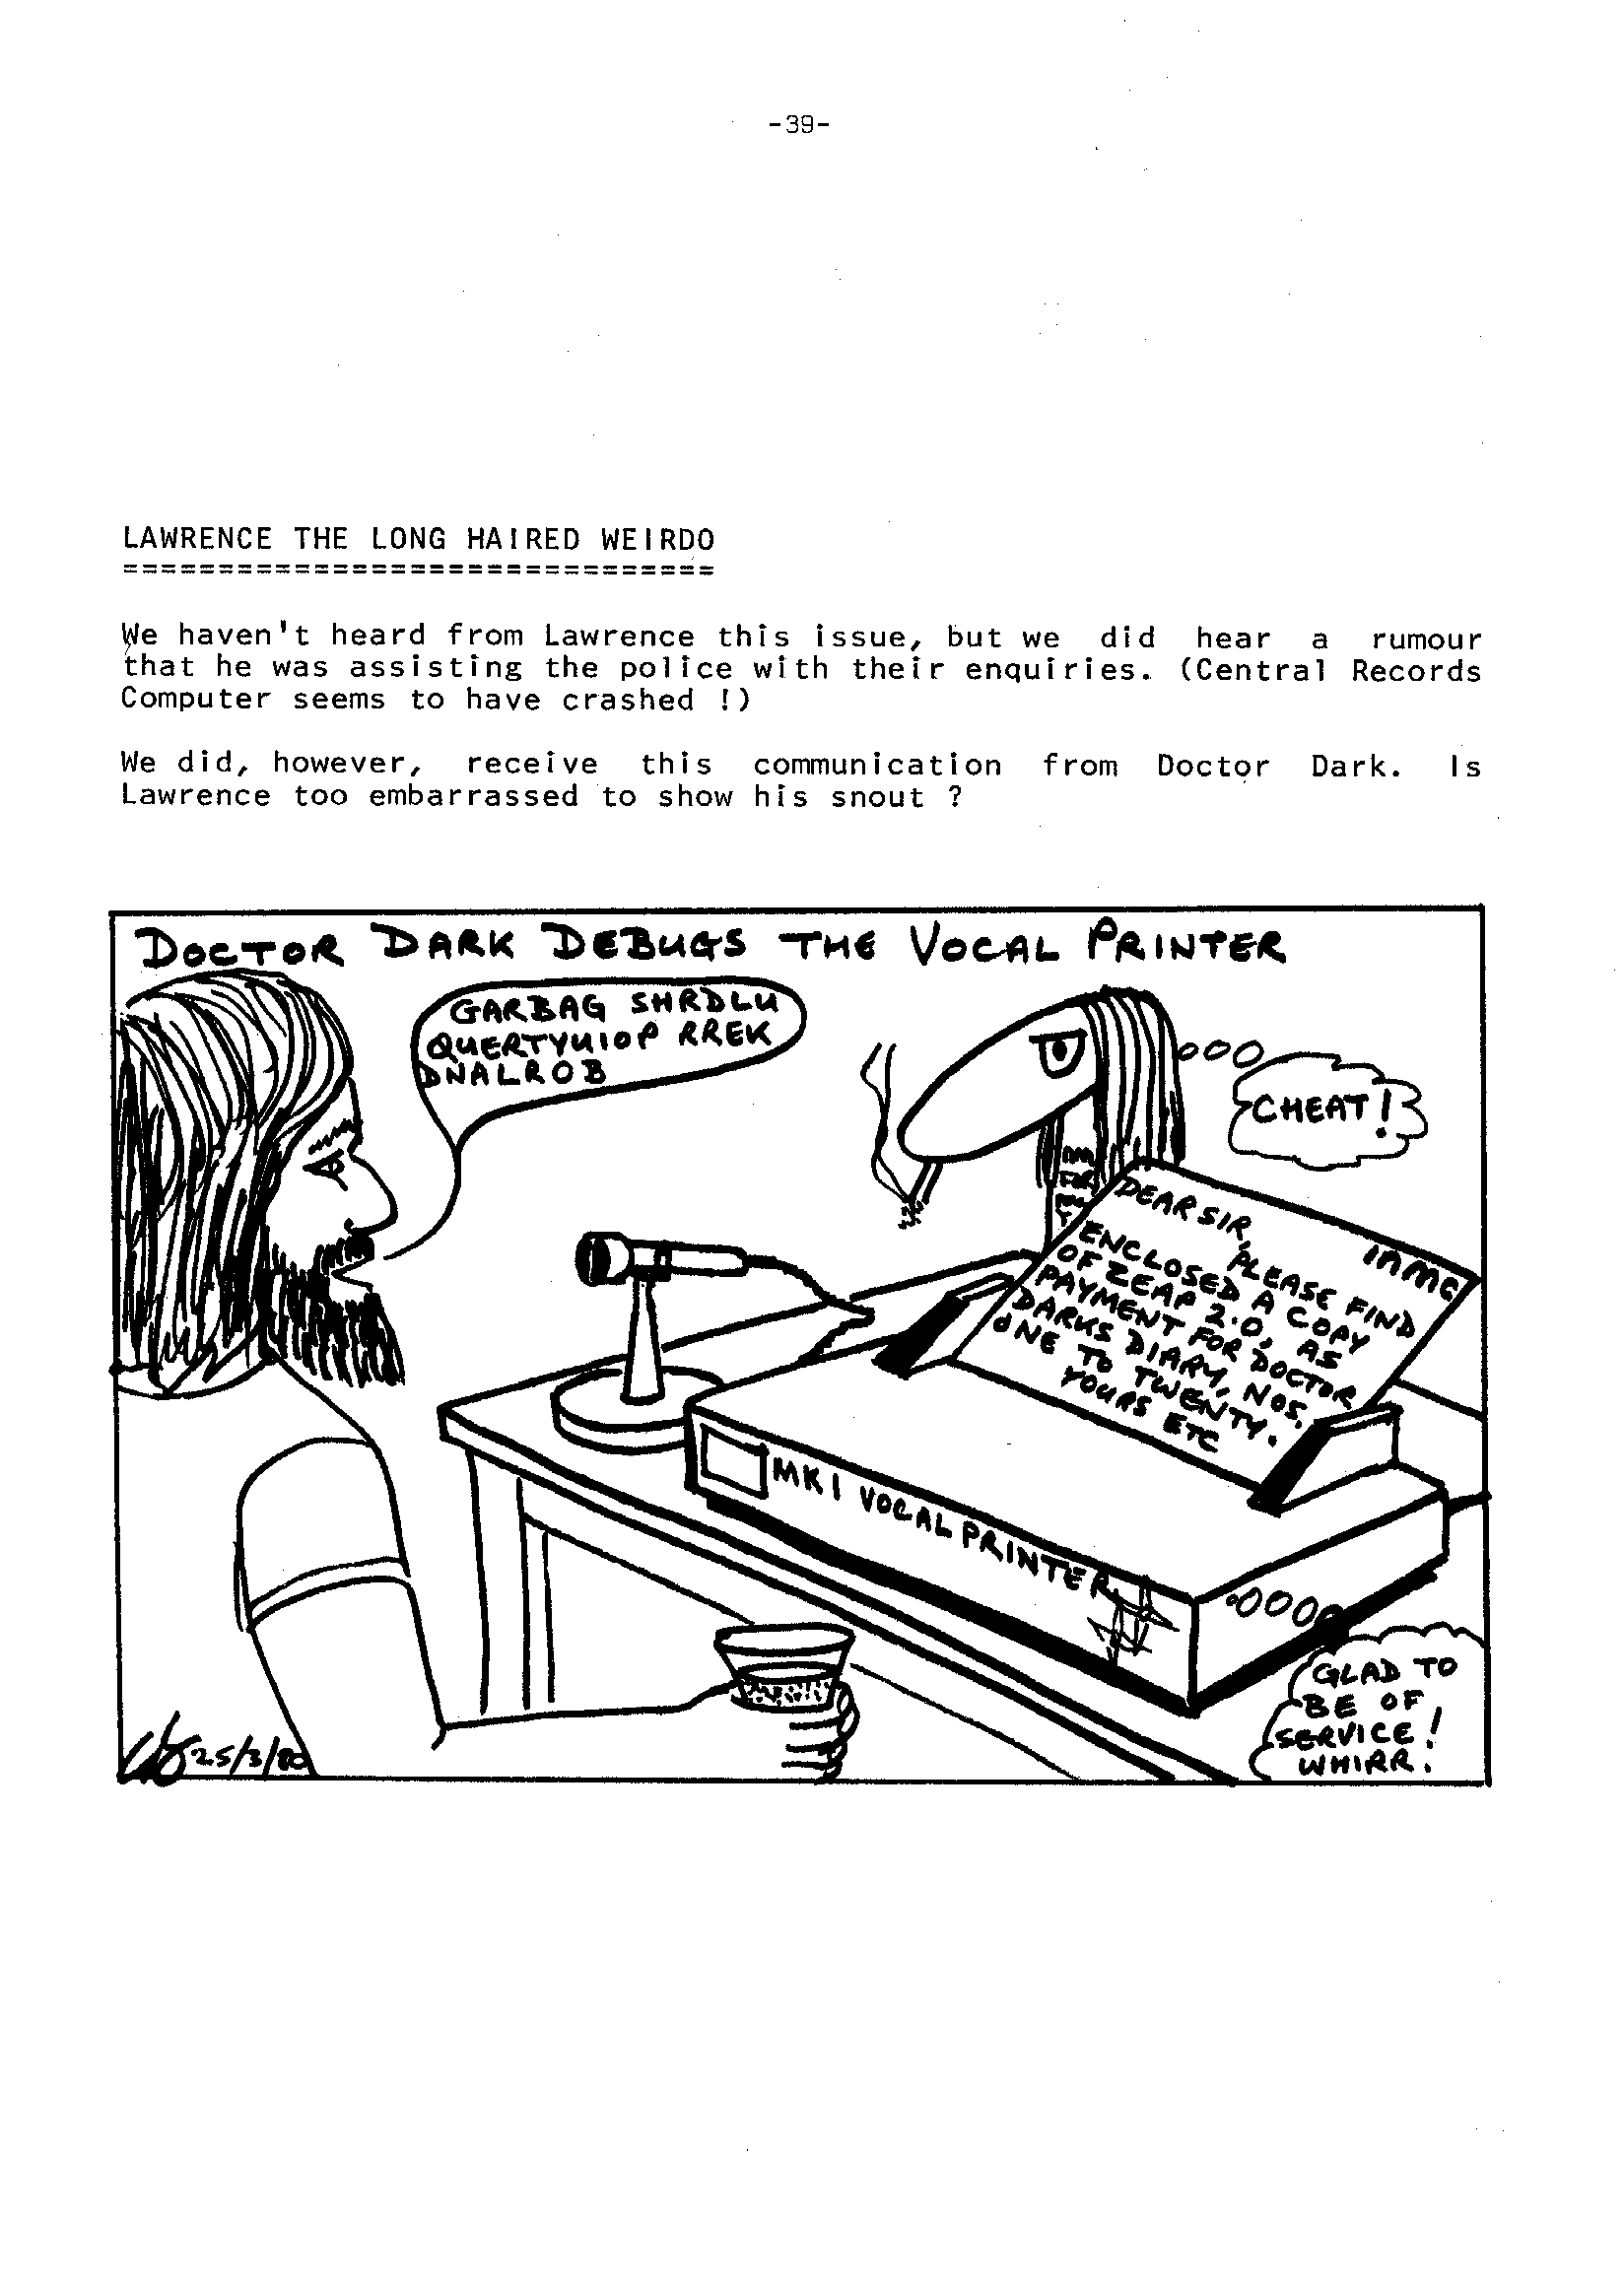 -39-
LAWRENCE THE LONG HAIRED WEIRDO
===============================
We haven't heard from Lawrence this issue, but we did hear a rumour
that he was assisting the police with their enquiries. (Central Records
Computer seems to have crashed !)
We did, however, receive this communication from Doctor Dark. Is
Lawrence too embarrassed to show his snout ?
DOCTOR DARK DEBUGS THE VOCAL PRINTER
GARBAG SHRDLU
QUERTYUIOP RREK
DNALROB
CHEAT!
INMC
DEAR SIR,
PLEASE FIND
ENCLOSED A COPY
OF ZEAP 2.0, AS
PAYMENT FOR DOCTOR
DARKS DIARY, NOS,
ONE TO TWENTY.
YOURS ETC
MK I VOCAL PRINTER
GLAD TO
BE OF
SERVICE!
WHIRR.
25/3/80